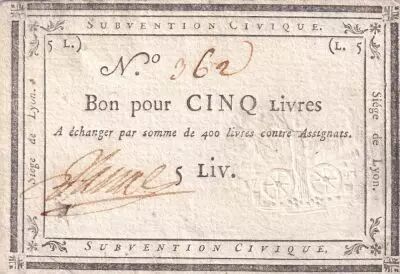 SUBVENTION CIVIQUE.
5 L.) (L. 5
N.º 362
Bon pour CINQ Livres
A échanger par somme de 400 livres contre Assignats.
5 Liv.
Siége de Lyon.
Siége de Lyon.
SUBVENTION CIVIQUE.